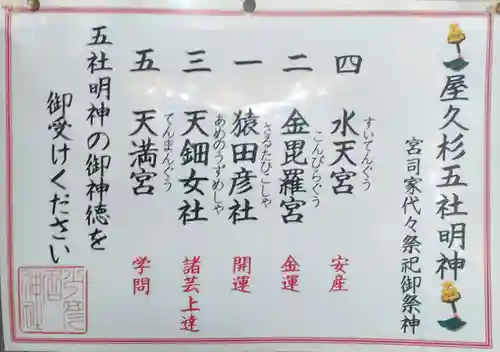 屋久杉五社明神
宮司家代々祭祀御祭神
四 水天宮 すいてんぐう 安産
二 金毘羅宮 こんぴらぐう 金運
一 猿田彦社 さるたひこしゃ 開運
三 天鈿女社 あめのうずめしゃ 諸芸上達
五 天満宮 てんまんぐう 学問
五社明神の御神徳を
御受けください